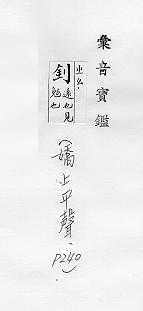 彙音寶鑑
止么·
釗
遠也見
勉也
(嬌上平聲、P240)